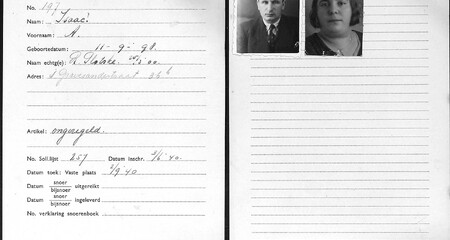 No. 197
Naam: Isaac!
Voornaam: A.
Geboortedatum: 11 - 9 - 98.
Naam echtg(e):
Adres:
Artikel: ongeregeld.
No. Soll.lijst 257 Datum inschr. 2/6 40.
Datum toek: Vaste plaats 2/9 40
Datum snoer bijsnoer uitgereikt
Datum snoer bijsnoer ingeleverd
No. verklaring snoerenboek